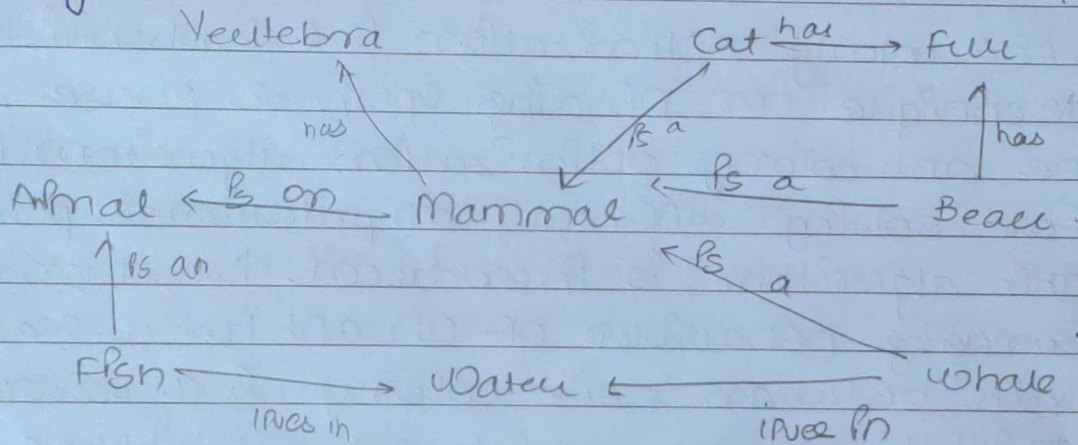 Vertebra Cat has Fur
has is a has
Animal is an Mammal is a Bear
is an is a
Fish Water Whale
lives in lives in